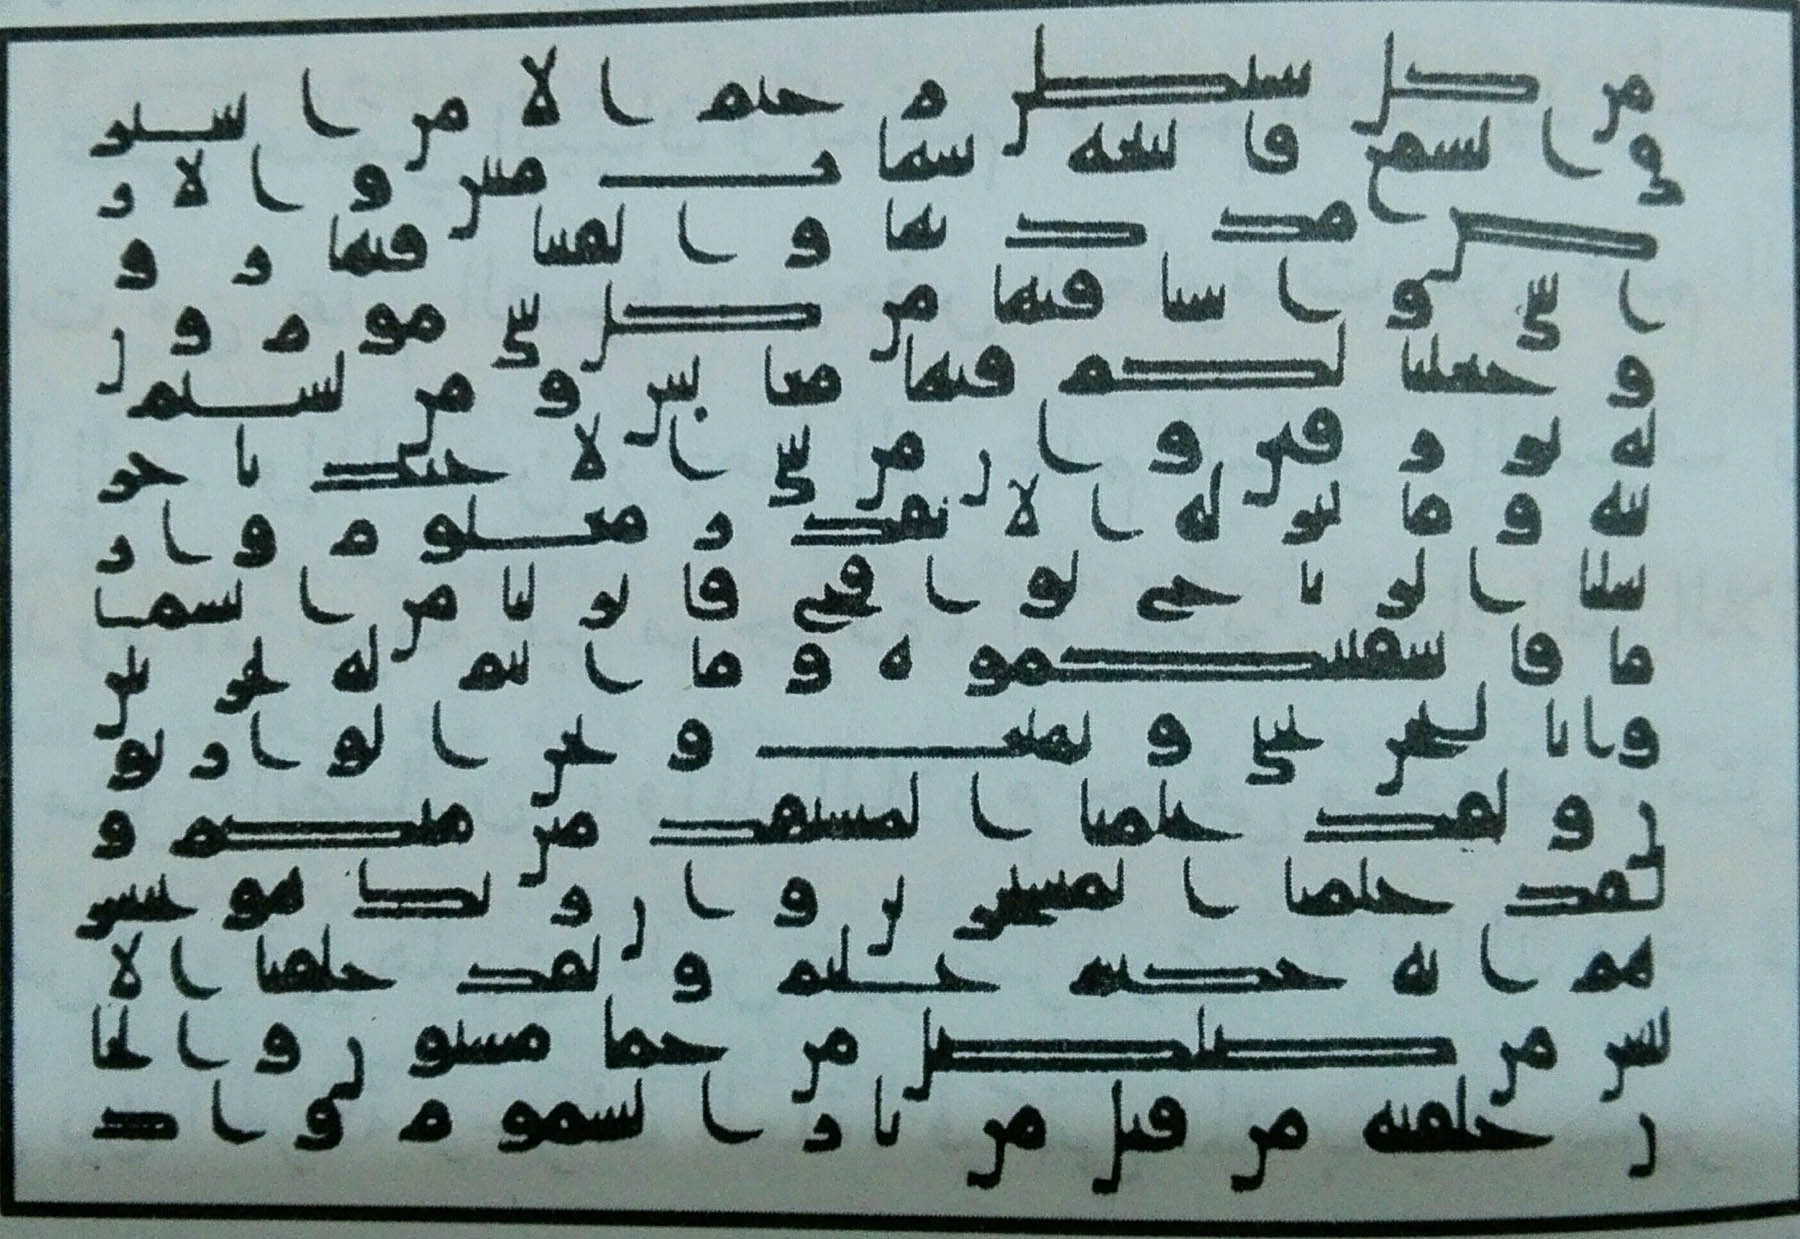 من كل شيطن رجيم الا من استر
ق السمع فاتبعه شهاب مبين والار
ض مددنها والقينا فيها رو
اسي وانبتنا فيها من كل شي موزون
وجعلنا لكم فيها معيش ومن لستم
له برزقين وان من شي الا عندنا خز
ئنه وما ننزله الا بقدر معلوم وار
سلنا الريح لوقح فانزلنا من السما
ما فاسقينكموه وما انتم له بخزنين
وانا لنحن نحي ونميت ونحن الورثو
ن ولقد علمنا المستقدمين منكم و
لقد علمنا المستخرين وان ربك هو يحشر
هم انه حكيم عليم ولقد خلقنا الا
نسن من صلصل من حما مسنون والجا
ن خلقنه من قبل من نار السموم واذ